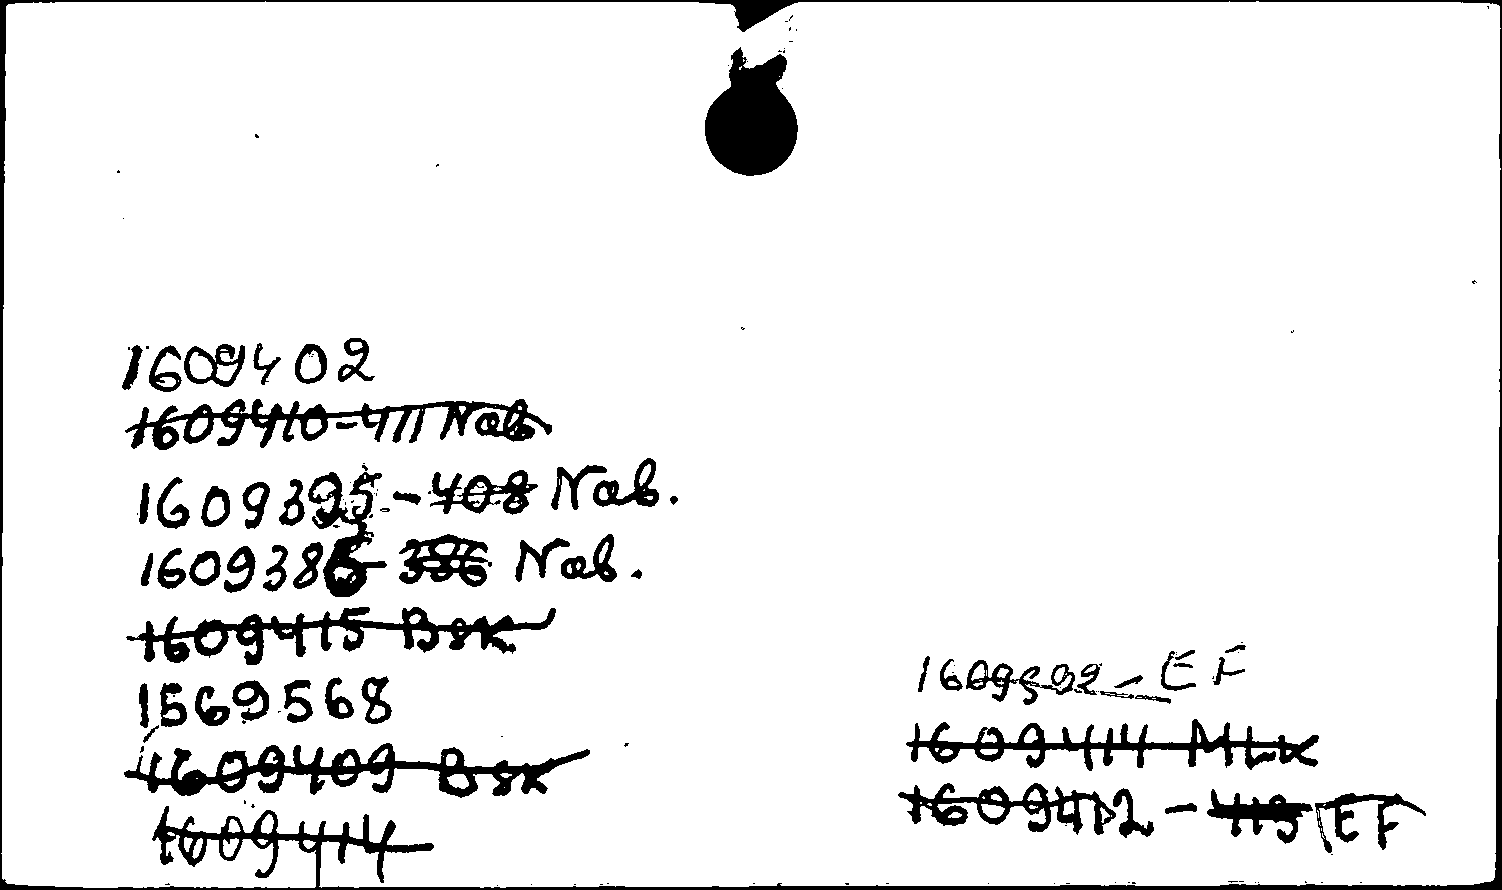 1609402
1609410-411 Nab
1609395-408 Nab.
1609386-386 Nab.
1609415 Bsk
1569568
1609409 Bsk
1609414
1609392-EF
1609414 MLK
1609412-413 EF